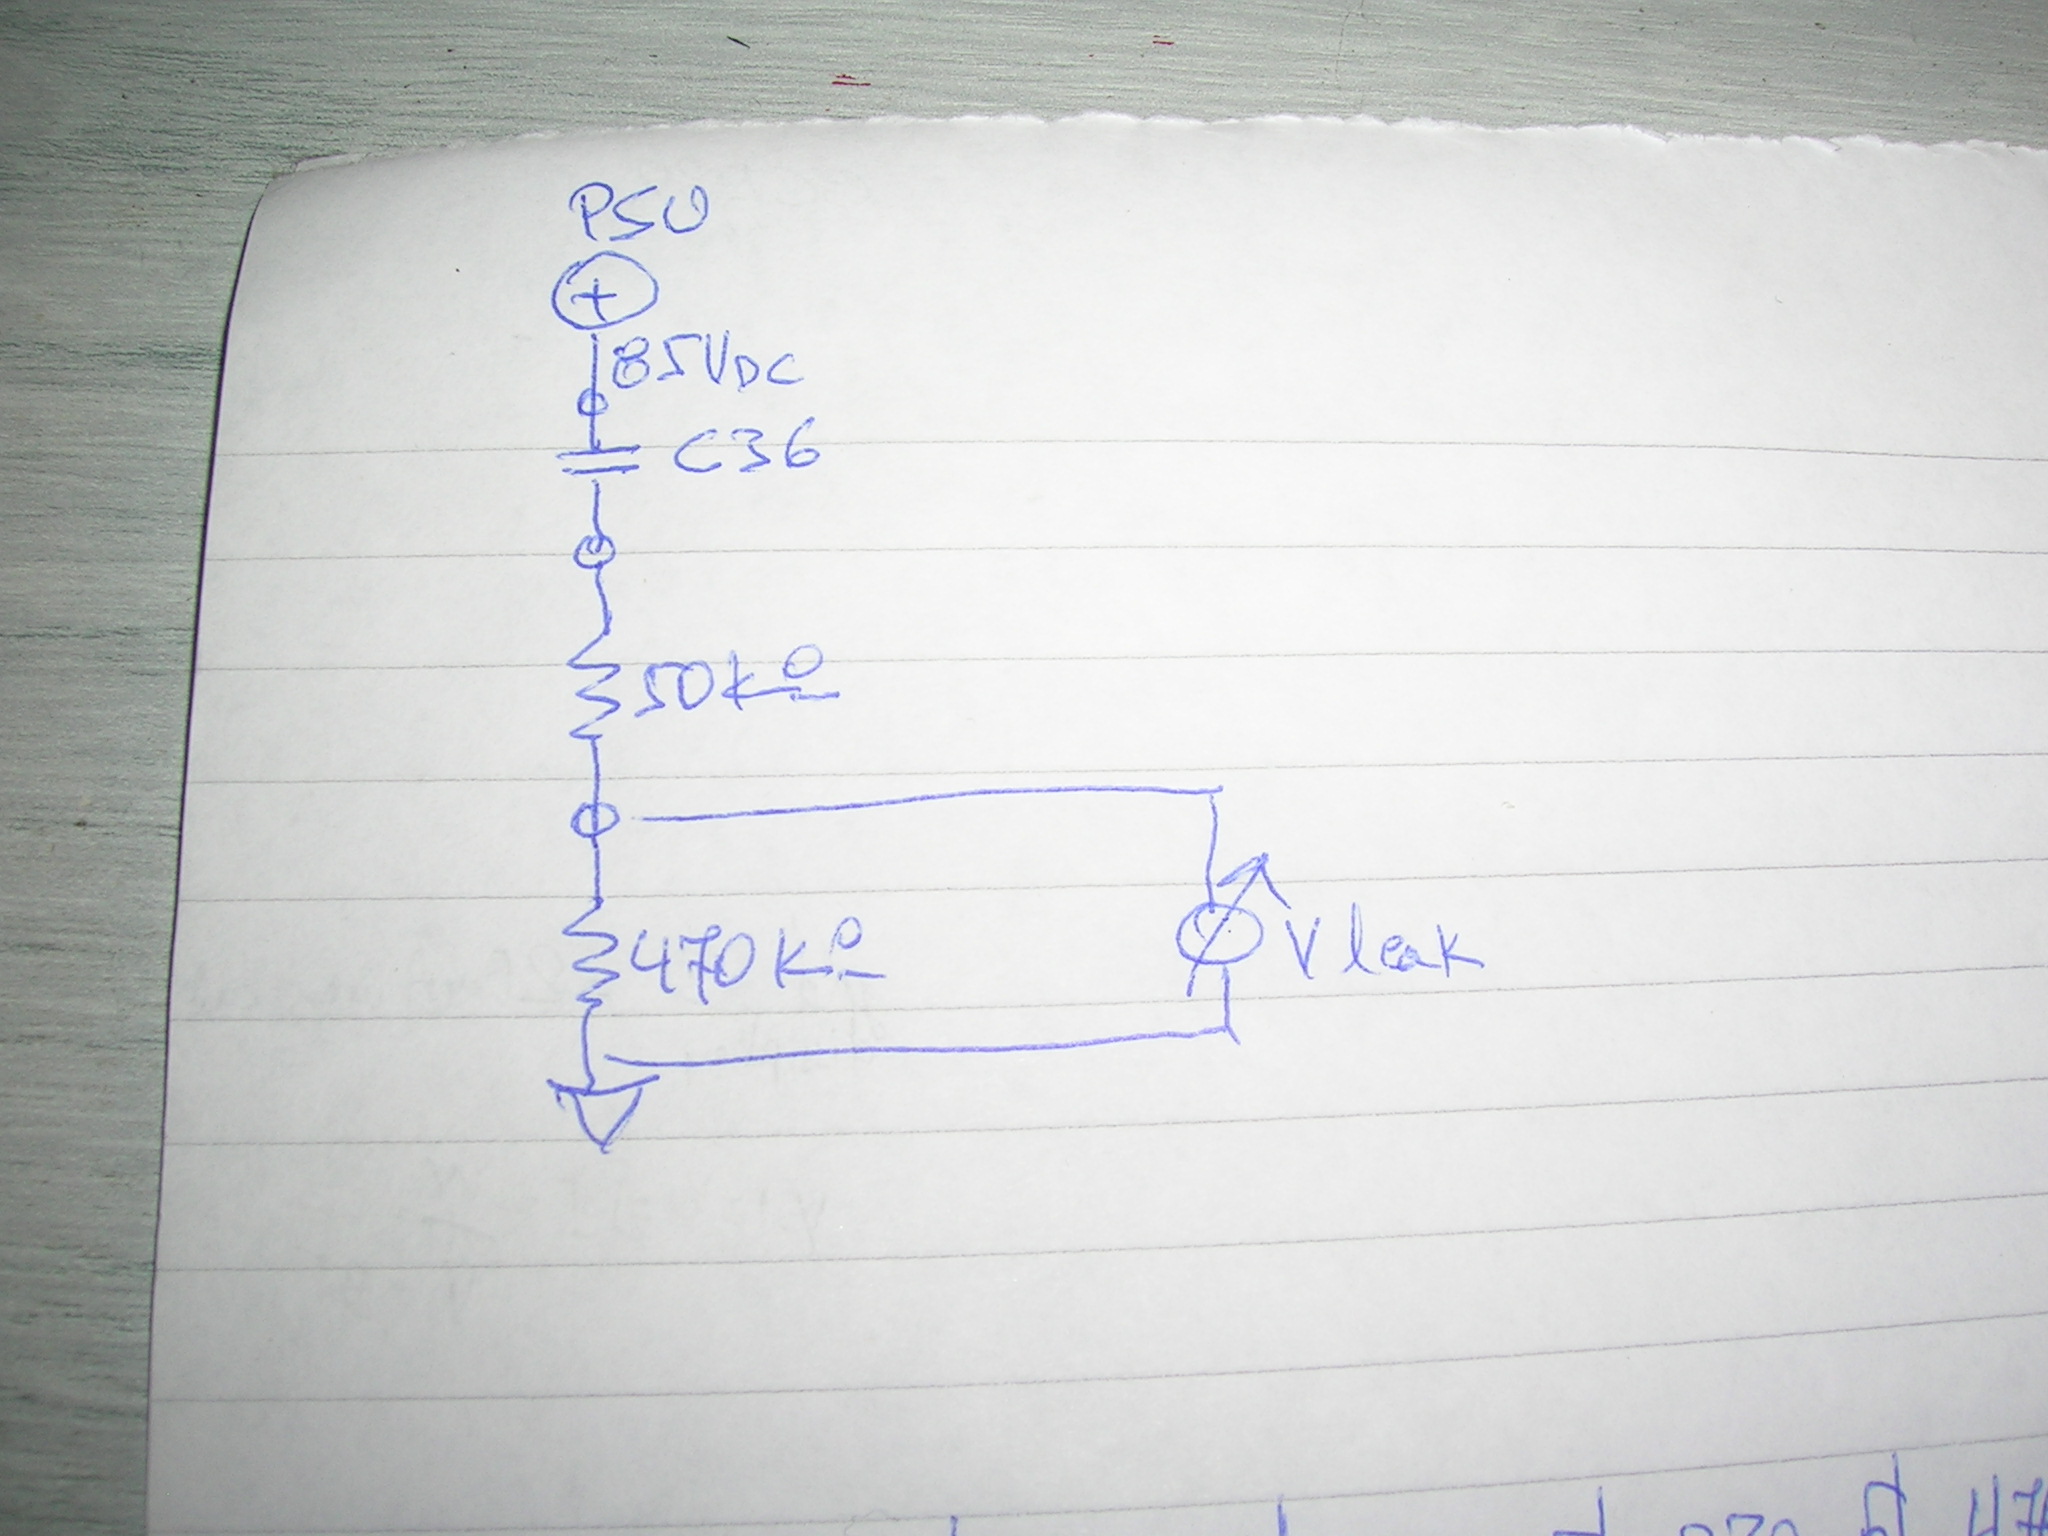 PSU
+
85VDC
C36
50kΩ
470kΩ
V leak